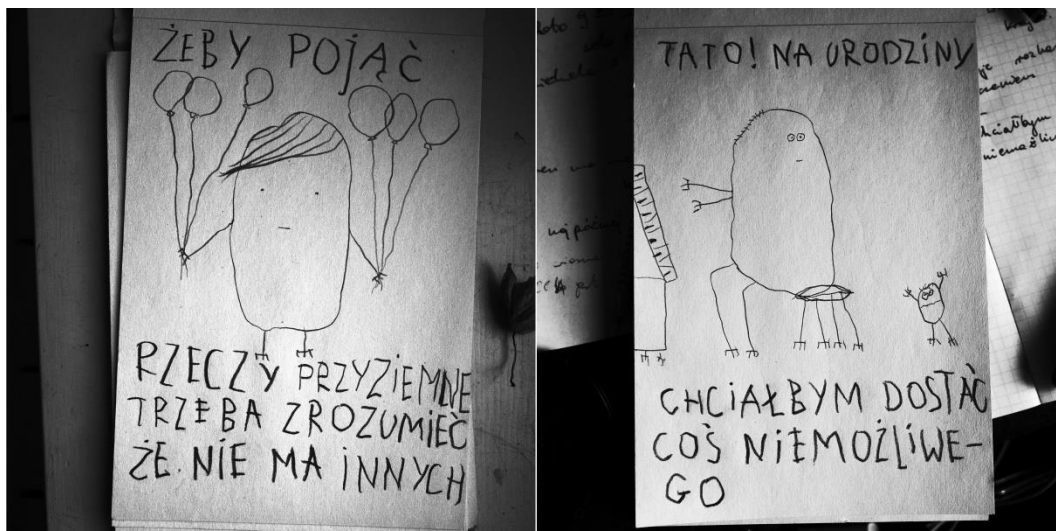 ŻEBY POJĄĆ
RZECZY PRZYZIEMNE
TRZEBA ZROZUMIEĆ
ŻE NIE MA INNYCH
TATO! NA URODZINY
CHCIAŁBYM DOSTAĆ
COŚ NIEMOŻLIWE-
GO
chciałbym
niemożliw